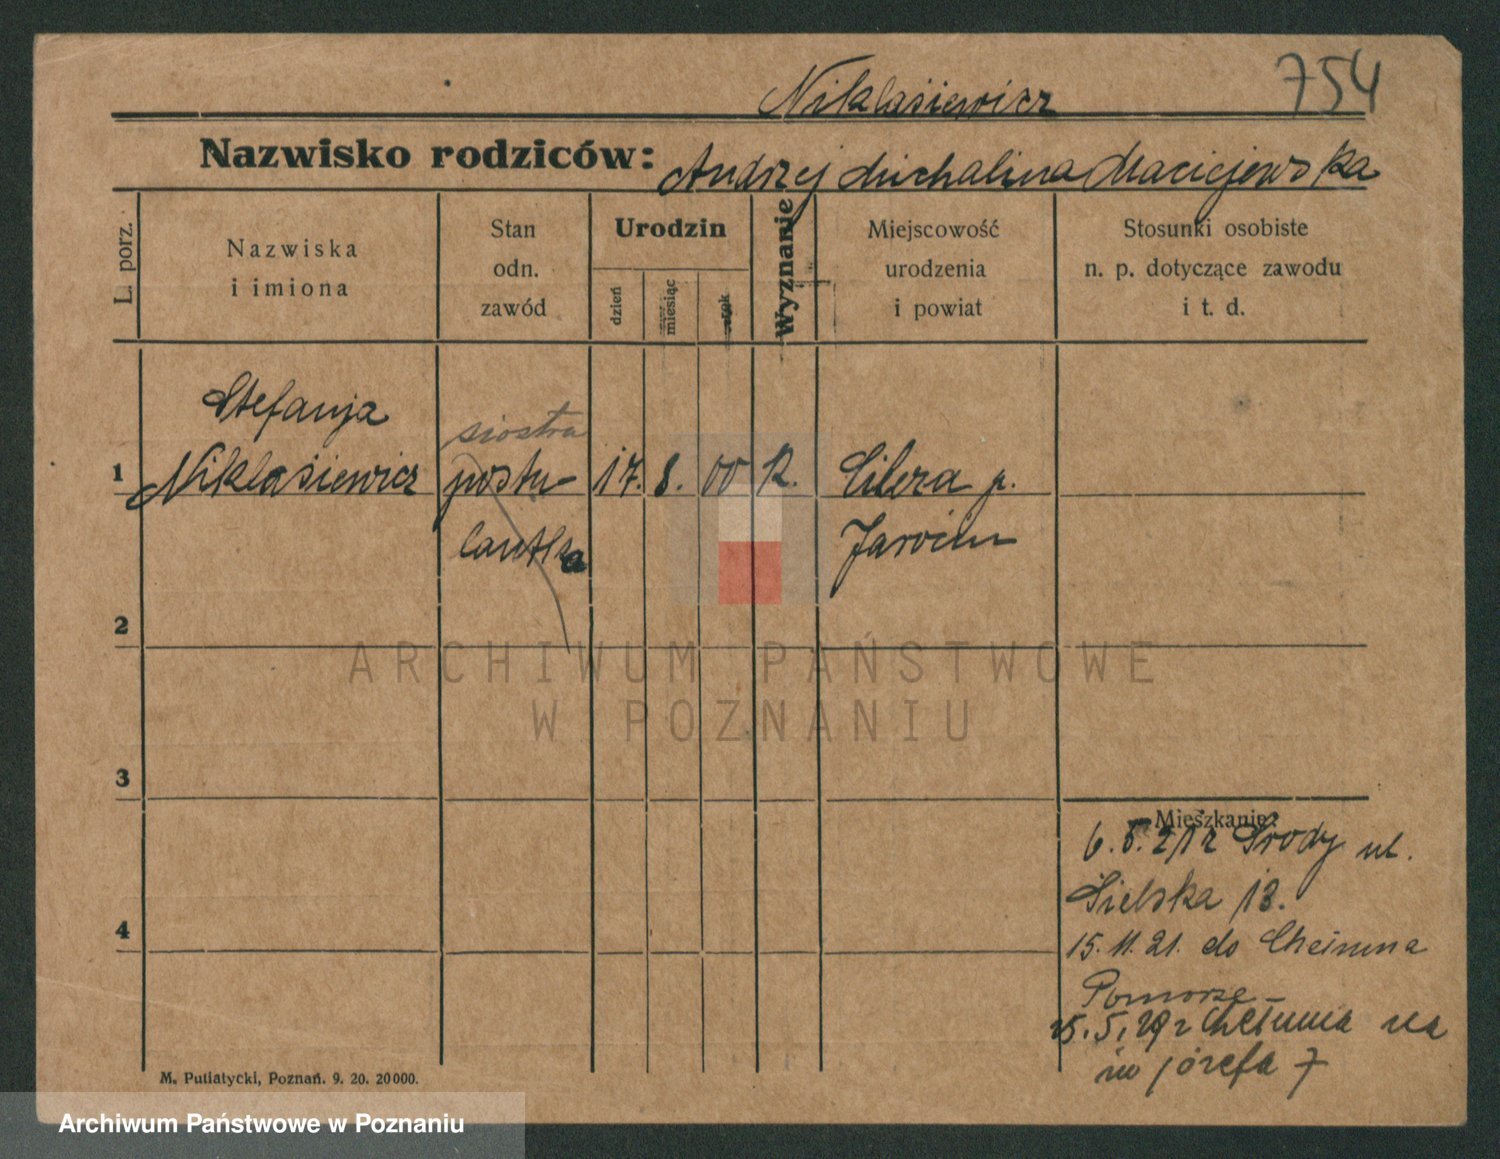 Niklasiewicz 754
Nazwisko rodziców: Andrzej Michalina Maciejewska
L. porz.
Nazwiska
i imiona
Stan
odn.
zawód
Urodzin
dzień
miesiąc
rok
Wyznanie
Miejscowość
urodzenia
i powiat
Stosunki osobiste
n. p. dotyczące zawodu
i t. d.
Stefanja
siostra
1 Niklasiewicz postu- 17. 8. 00 R. Cilcza p.
lantka Jarocin
2
3
Mieszkanie:
6. 5. 21 z Środy ul.
Sielska 13.
4
15. 11. 21. do Chełmna
Pomorze
25. 5. 29 z Chełmna na
św józefa 7
M. Putiatycki, Poznań. 9. 20. 20000.
ARCHIWUM PAŃSTWOWE
W POZNANIU
Archiwum Państwowe w Poznaniu